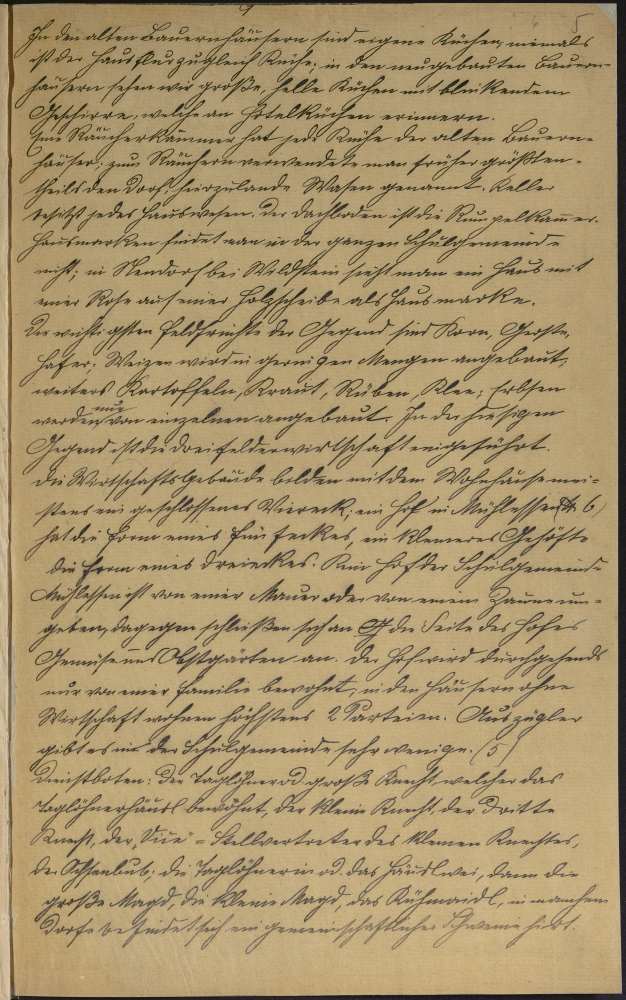 5
In den alten Bauernhäusern sind eigene Küchen, niemals
ist der Hausflur zugleich Küche; in den neugebauten Bauern-
häusern sehen wir große, helle Küchen mit blinkendem
Geschirre, welche an Hotelküchen erinnern.
Eine Räucherkammer hat jede Küche der alten Bauern-
häuser; zum Räuchern verwendete man früher größten-
theils den Torf, hierzulande Wasen genannt. Keller
besitzt jedes Hauswesen. Der Dachboden ist die Rumpelkam̅er.
Hausmarken findet man in der ganzen Schulgemeinde
nicht; in Nendorf bei Wildstein sieht man ein Haus mit
einer Rose auf einer Holzscheibe als Hausmarke.
Die wichtigsten Feldfrüchte der Gegend sind Korn, Gerste,
Hafer; Weizen wird in geringen Mengen angebaut;
weiters Kartoffeln, Kraut, Rüben, Klee; Erbsen
werden nur von einzelnen angebaut. In der hiesigen
Gegend ist die Dreifelderwirtschaft eingeführt.
Die Wirtschaftsgebäude bilden mit dem Wohnhause mei-
stens ein geschlossenes Viereck; ein Hof in Mühlessen (№ 6)
hat die Form eines Fünfeckes, ein kleineres Gehöfte
die Form eines Dreieckes. Kein Hof der Schulgemeinde
Mühlessen ist von einer Mauer oder von einem Zaune um-
geben, dagegen schließen sich an die Seite des Hofes
Gemüse und Obstgärten an. Der Hof wird durchgehends
nur von einer Familie bewohnt, in den Häusern ohne
Wirtschaft wohnen höchstens 2 Parteien. Auszügler
gibt es in der Schulgemeinde sehr wenige. (5)
Dienstboten: Der Taglöhner od. große Knecht, welcher das
Taglöhnerhäusl bewohnt, der kleine Knecht, der Dritte
Knecht, der "Vice" = Stellvertreter des kleinen Knechtes,
der Ochsenbub; die Taglöhnerin od. das Häuslwei, dann die
große Magd, die kleine Magd, das Kühmaidl, in manchem
Dorfe befindet sich ein gemeinschaftlicher Schweinehirt.